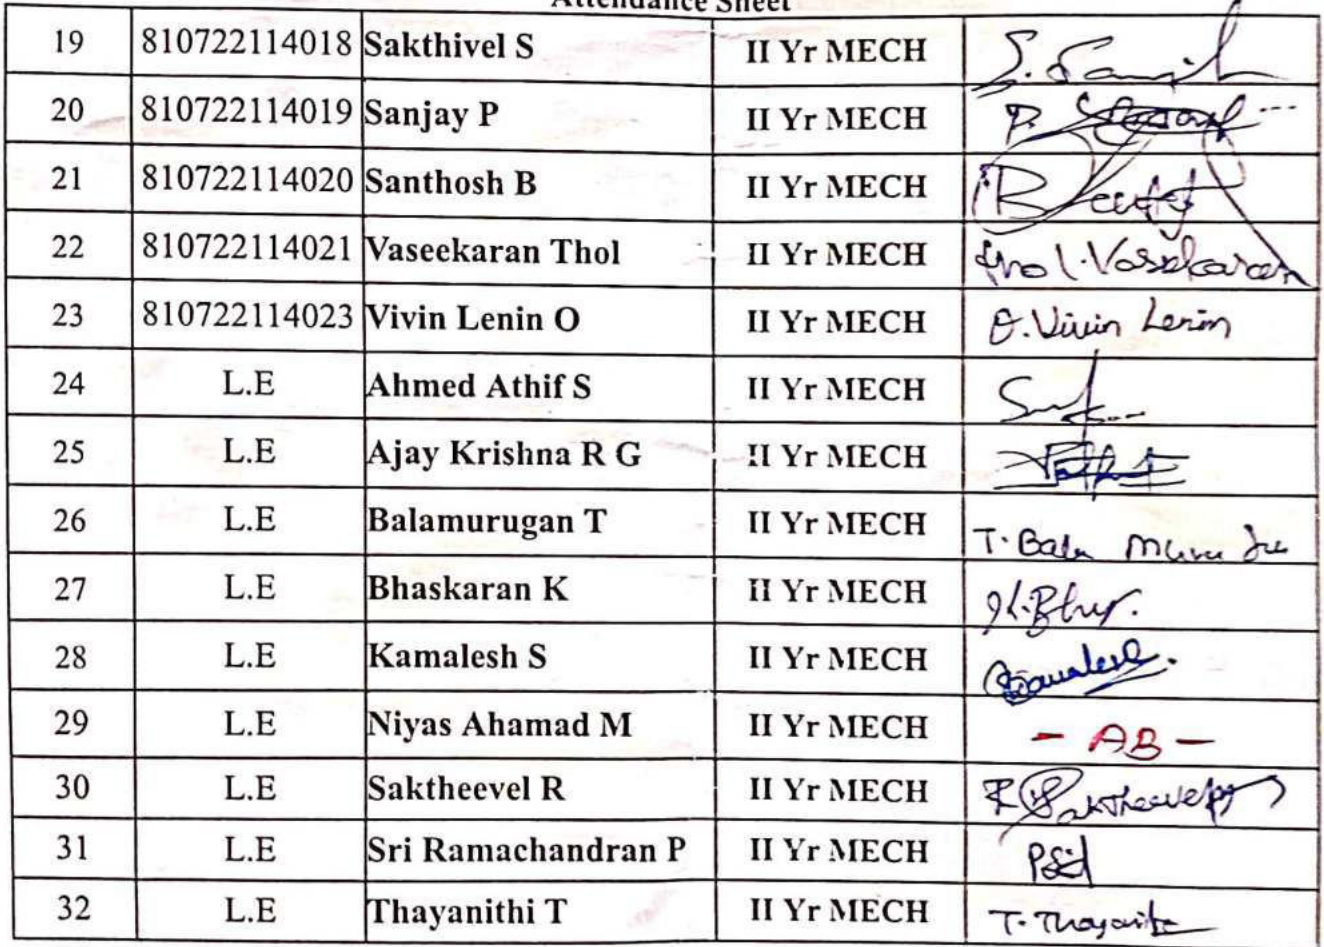 Attendance Sheet
19 810722114018 Sakthivel S II Yr MECH
20 810722114019 Sanjay P II Yr MECH P.
21 810722114020 Santhosh B II Yr MECH B
22 810722114021 Vaseekaran Thol II Yr MECH
23 810722114023 Vivin Lenin O II Yr MECH O. Vivin Lenin
24 L.E Ahmed Athif S II Yr MECH
25 L.E Ajay Krishna R G II Yr MECH
26 L.E Balamurugan T II Yr MECH T. Bala Muru
27 L.E Bhaskaran K II Yr MECH
28 L.E Kamalesh S II Yr MECH
29 L.E Niyas Ahamad M II Yr MECH - AB -
30 L.E Saktheevel R II Yr MECH
31 L.E Sri Ramachandran P II Yr MECH
32 L.E Thayanithi T II Yr MECH